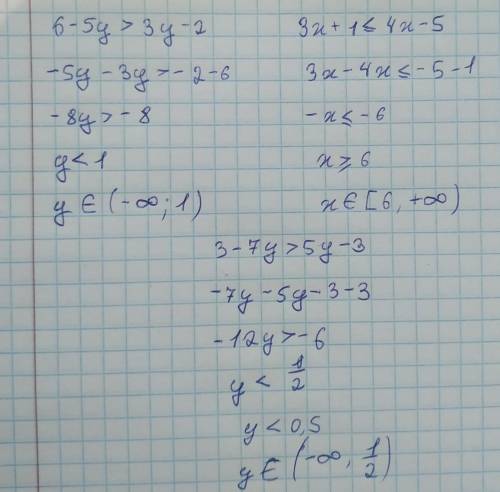 6-5y > 3y-2
-5y-3y>-2-6
-8y>-8
y<1
y∈(-∞;1)
3x+1≤4x-5
3x-4x≤-5-1
-x≤-6
x≥6
x∈[6,+∞)
3-7y>5y-3
-7y-5y-3-3
-12y>-6
y< 1/2
y<0,5
y∈(-∞, 1/2)